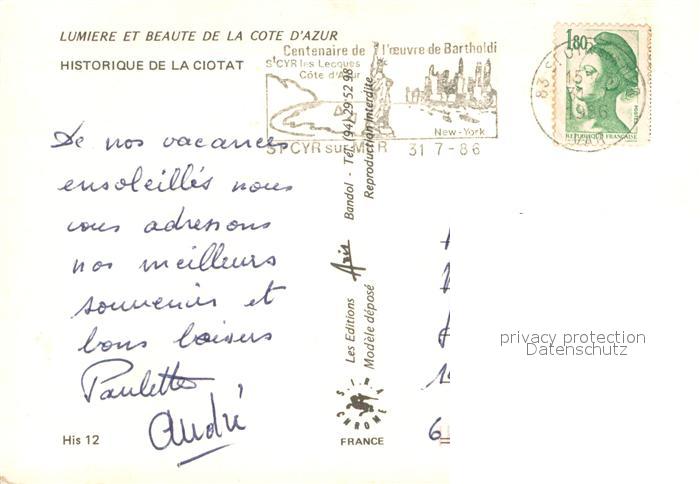 LUMIERE ET BEAUTE DE LA COTE D'AZUR
HISTORIQUE DE LA CIOTAT
Centenaire de l'œuvre de Bartholdi
St CYR les Lecques
Côte d'Azur
New-York
St CYR sur MER 31 7-86
1,80
REPUBLIQUE FRANÇAISE
83 ST CYR
VAR
De nos vacances
ensoleillés nous
vous adressons
nos meilleurs
souvenirs et
bons baisers
Paulette
André
His 12
Les Editions Aris Bandol - Tél. (94) 29 52 98
Modèle déposé Reproduction interdite
SIRA CHROME
FRANCE
privacy protection
Datenschutz
6